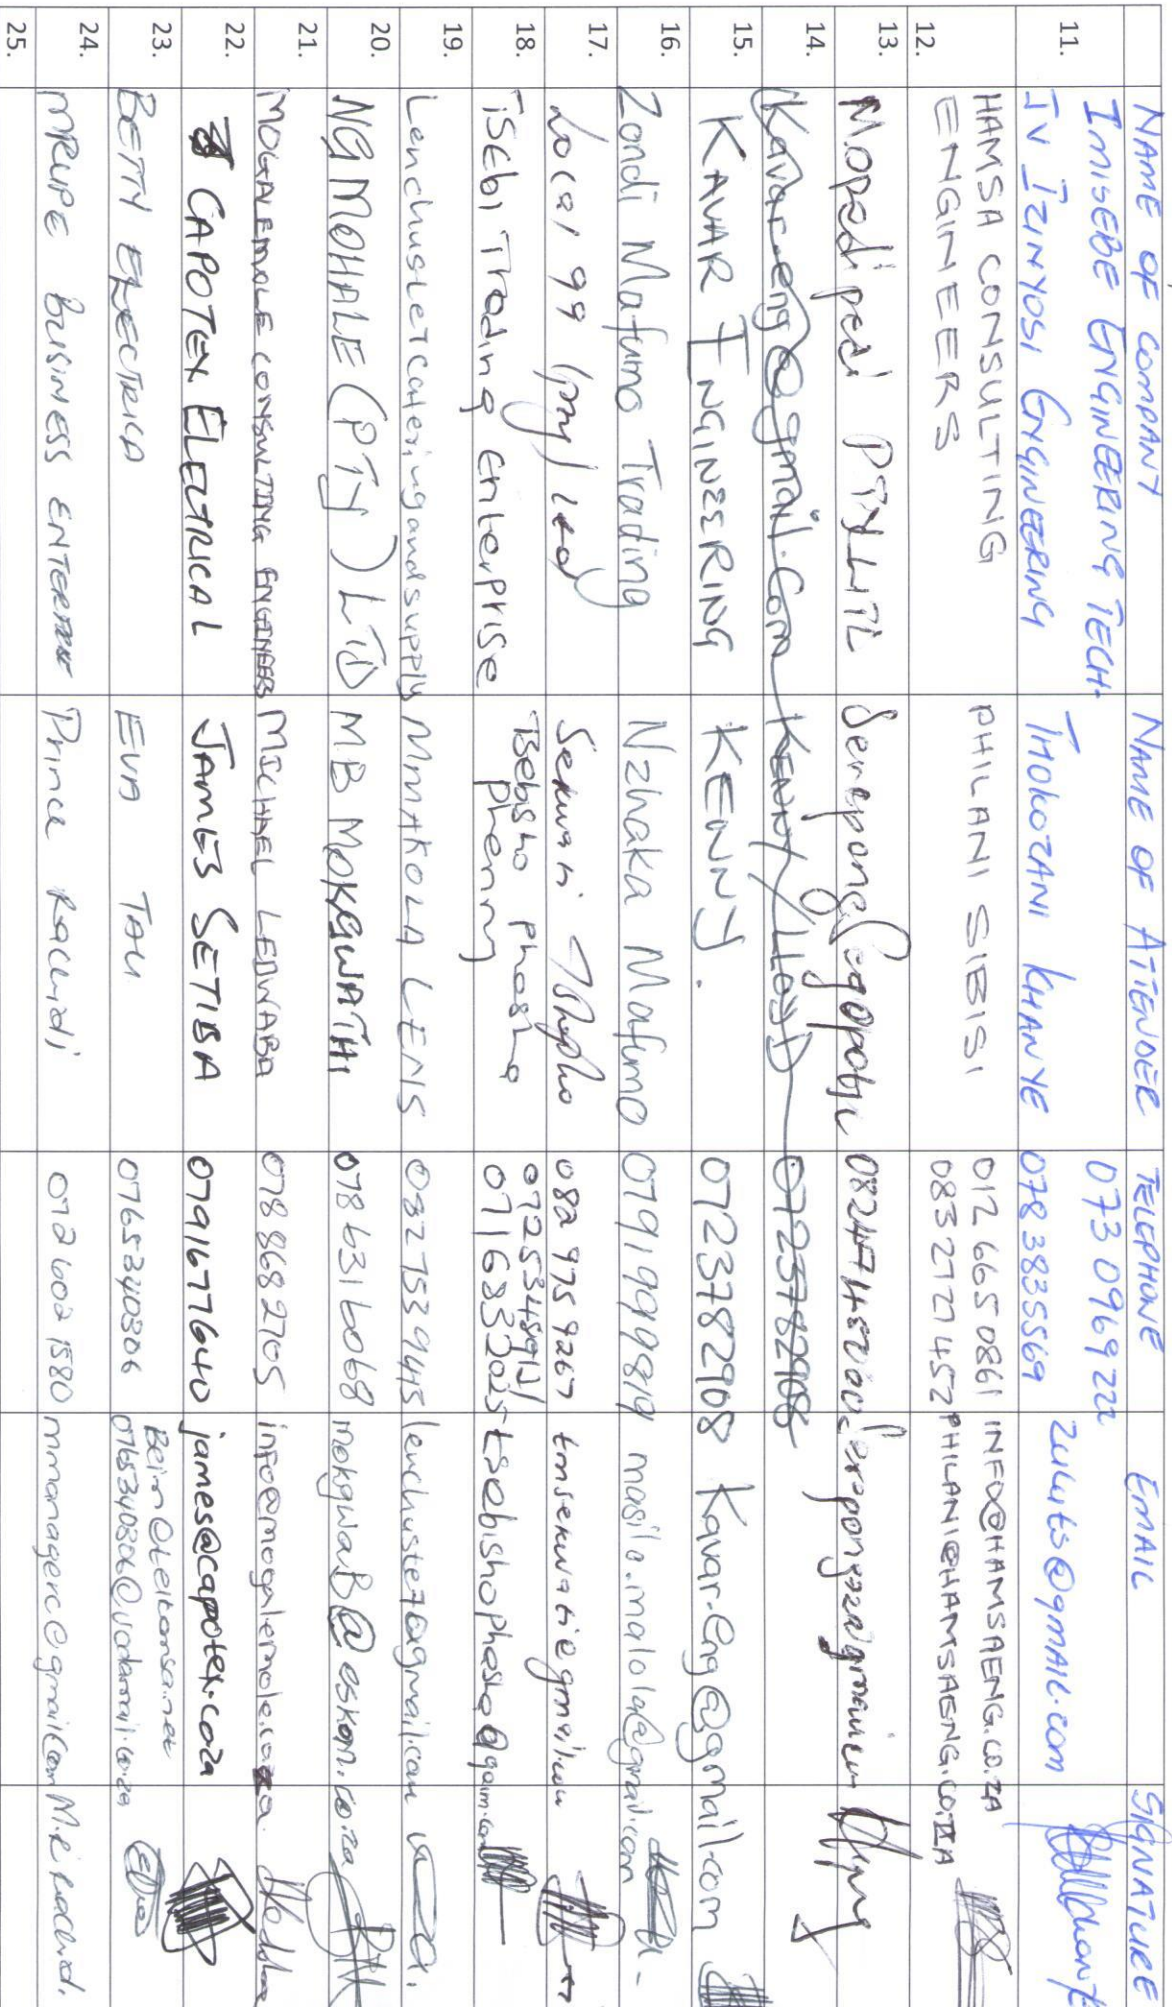 NAME OF COMPANY NAME OF ATTENDER TELEPHONE EMAIL SIGNATURE
IMISEBE ENGINEERING TECH- 073 0969222
11. JV IZINYOSI ENGINEERING THOKOZANI KHANYE 078 3835569 ZULUTS@gMAIL.COM
HAMSA CONSULTING PHILANI SIBISI 012 665 0861 INFO@HAMSAENG.CO.ZA
12. ENGINEERS 083 2727452 PHILANI@HAMSAENG.CO.ZA
13. Mopedi pedi PTY LTD
14. Kavar-eng@gmail.com KENNY/LLOYD 0723782908
15. KAVAR ENGINEERING KENNY. 0723782908 Kavar-Eng@gmail.com
16. Zondi Mafumo Trading Nzhaka Mafumo 0791999819 masilo.malola@gmail.com
17. Local 99 (pty) Ltd Sekwati Tshepho 082 975 9267 tmsekwati@gmail.com
18. TSEBI Trading Enterprise Tsebisho phasha phenny 0716833025 tsebishophasha@gaim.com
19. Lenchusletcateringandsupply MMAKOLA LENIS 0827539445
20. NG MOHALE (PTY) LTD M.B MOKGWATHI 078 631 6068 mokgwaB@eskom.co.za
21. MOGALEMOLE CONSULTING ENGINEERS MICHAEL LEDWABA 078 868 2705 info@mogalemole.co.za.
22. CAPOTEX ELECTRICAL JAMES SETIBA 0791677640 james@capotex.co.za
23. BETTY ELECTRICA EVA TAU 0765340806 Beirn@telkomsa.net
0765340806@vodamail.co.za
24. MRUPE BUSINESS ENTERPRISE Prince Rachidi 072 602 1580 mmanagerc@gmail.com M.e Rachidi.
25.